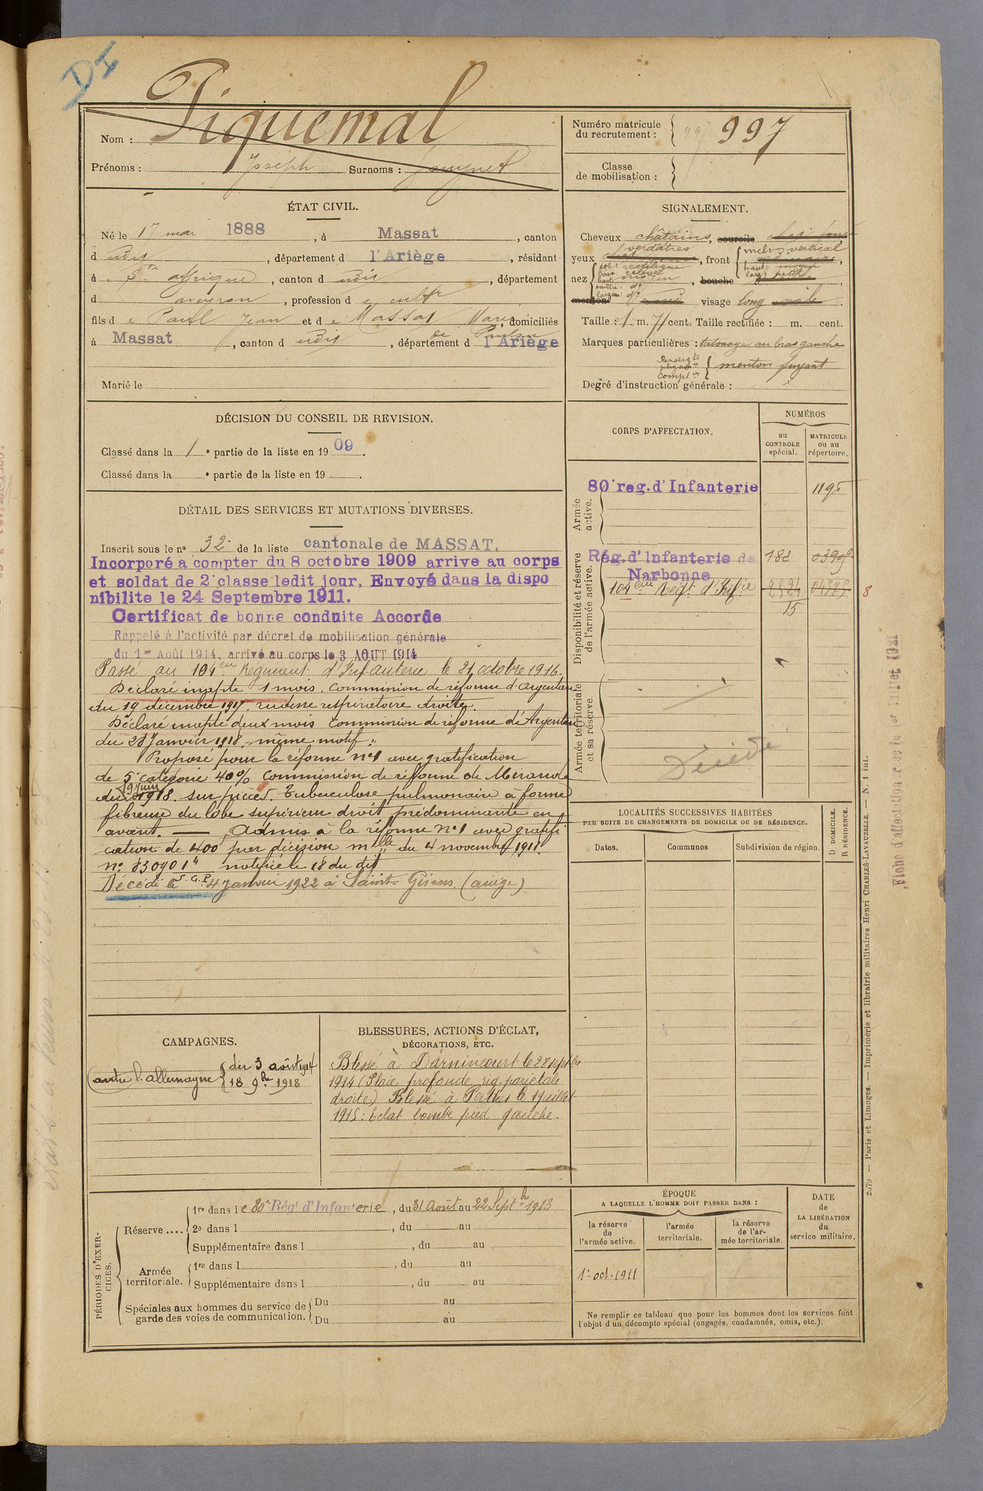 DI
Nom : Piquemal
Prénoms : Joseph Surnoms :
Numéro matricule du recrutement : 997
Classe de mobilisation :
ÉTAT CIVIL.
Né le 17 mai 1888, à Massat, canton
d udit, département d l'Ariège, résidant
à St affrique, canton d udit, département
d aveyron, profession d
fils d e Paul Jean et d e Massat Marie domiciliés
à Massat, canton d udit, département d l'Ariège
Marié le
SIGNALEMENT.
Cheveux châtains, sourcils
yeux verdâtres, front inclon vertical
haut: moyen
larg: petite
nez rectiligne, bouche
menton visage long
Taille : 1 m. 71 cent. Taille rectifiée : m. cent.
Marques particulières : tatouage au bras gauche
menton fuyant
Degré d'instruction générale :
DÉCISION DU CONSEIL DE REVISION.
Classé dans la 1e partie de la liste en 1909.
Classé dans la e partie de la liste en 19 .
DÉTAIL DES SERVICES ET MUTATIONS DIVERSES.
Inscrit sous le no 32 de la liste cantonale de MASSAT.
Incorporé à compter du 8 octobre 1909 arrive au corps
et soldat de 2e classe ledit jour, Envoyé dans la dispo
nibilite le 24 Septembre 1911.
Certificat de bonne conduite Accorde
Rappelé à l'activité par décret de mobilisation générale
du 1er Août 1914, arrivé au corps le 3 AOUT 1914
Passé au 104eme Régiment d'Infanterie le 21 octobre 1916.
Déclaré inapte 1 mois, commission de réforme d'Argentan
du 19 décembre 1917. rudesse respiratoire droite.
Déclaré inapte deux mois Commission de réforme d'Argentan
du 28 Janvier 1918. même motif.
Proposé pour la réforme no 1 avec gratification
de 5e catégorie 40% Commission de réforme de Mirande
du 19 juin 1918. sur pièces. Tuberculose pulmonaire à forme
fibreuse du lobe supérieur droit prédominante en
avant. — Admis à la réforme no 1 avec gratifi
cation de 400 par décision mlle du 4 novembre 1918.
no 830901 notifiée le 18 du dit
Décédé le 4 janvier 1922 à Saint-Girons (ariège)
CORPS D'AFFECTATION.
NUMÉROS
au CONTROLE spécial.
MATRICULE ou au répertoire.
Armée active.
80e reg. d'Infanterie 1195
Disponibilité et réserve de l'armée active.
Rég. d'Infanterie de Narbonne 182
104eme Régt d'Infie
15
8
Armée territoriale et sa réserve
Décédé
LOCALITÉS SUCCESSIVES HABITÉES
PAR SUITE DE CHANGEMENTS DE DOMICILE OU DE RÉSIDENCE.
Dates. Communes Subdivision de région. D DOMICILE. R RÉSIDENCE.
CAMPAGNES.
Contre l'allemagne du 3 août 1914
18 9bre 1918
BLESSURES, ACTIONS D'ÉCLAT,
DÉCORATIONS, ETC.
Blessé à Darnincourt le 28 septbre
1914 (Plaie profonde rég. pariétale
droite) Blessé à Perthes le 17 juillet
1915 : Eclat bombe pied gauche.
PÉRIODES D'EXERCICES.
Réserve ....
1re dans l e 80e Rég. d'Infanterie, du 31 Août au 22 Septbre 1913
2e dans l , du au
Supplémentaire dans l , du au
Armée territoriale.
1re dans l , du au
Supplémentaire dans l , du au
Spéciales aux hommes du service de garde des voies de communication.
Du au
Du au
ÉPOQUE
A LAQUELLE L'HOMME DOIT PASSER DANS :
la réserve de l'armée active.
l'armée territoriale.
la réserve de l'armée territoriale.
DATE DE LA LIBÉRATION du service militaire.
1er oct. 1911
Ne remplir ce tableau que pour les hommes dont les services font
l'objet d'un décompte spécial (engagés, condamnés, omis, etc.).
2070 — Paris et Limoges. — Imprimerie et librairie militaires Henri CHARLES-LAVAUZELLE. — N. 1 int.
Fiche d'affectation créée le 1er Juillet 1921